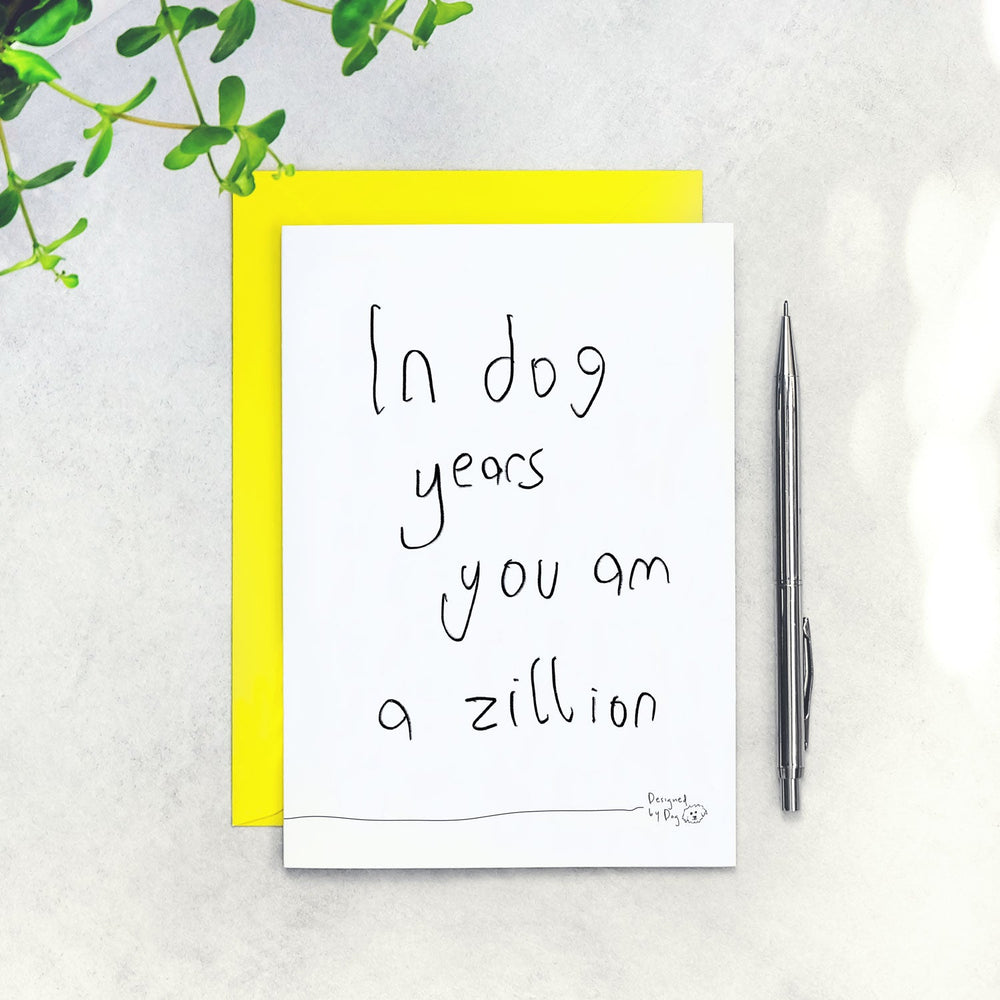 In dog
years
you am
a zillion
Designed
by Dog